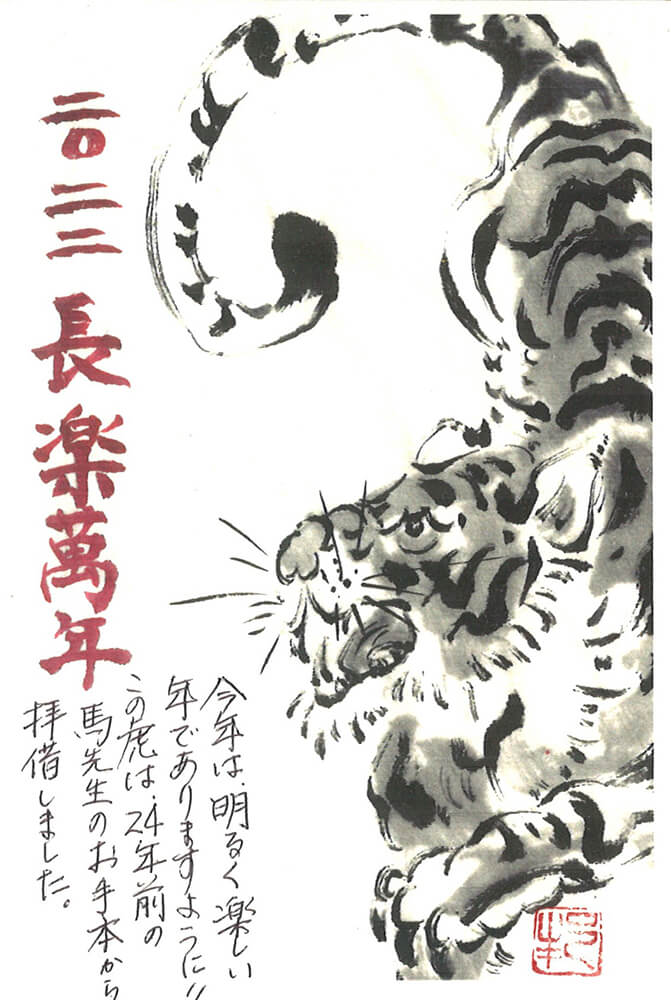 二〇二二 長楽萬年
今年は、明るく楽しい
年でありますように!!
この虎は、24年前の
馬先生のお手本から
拝借しました。